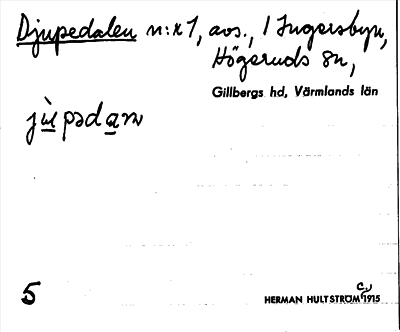 Djupedalen n:r 1, avs., 1 Ingersbyn,
Högeruds sn,
Gillbergs hd, Värmlands län
jù̠pəda̠n
5
HERMAN HULTSTRÖM C., 1915